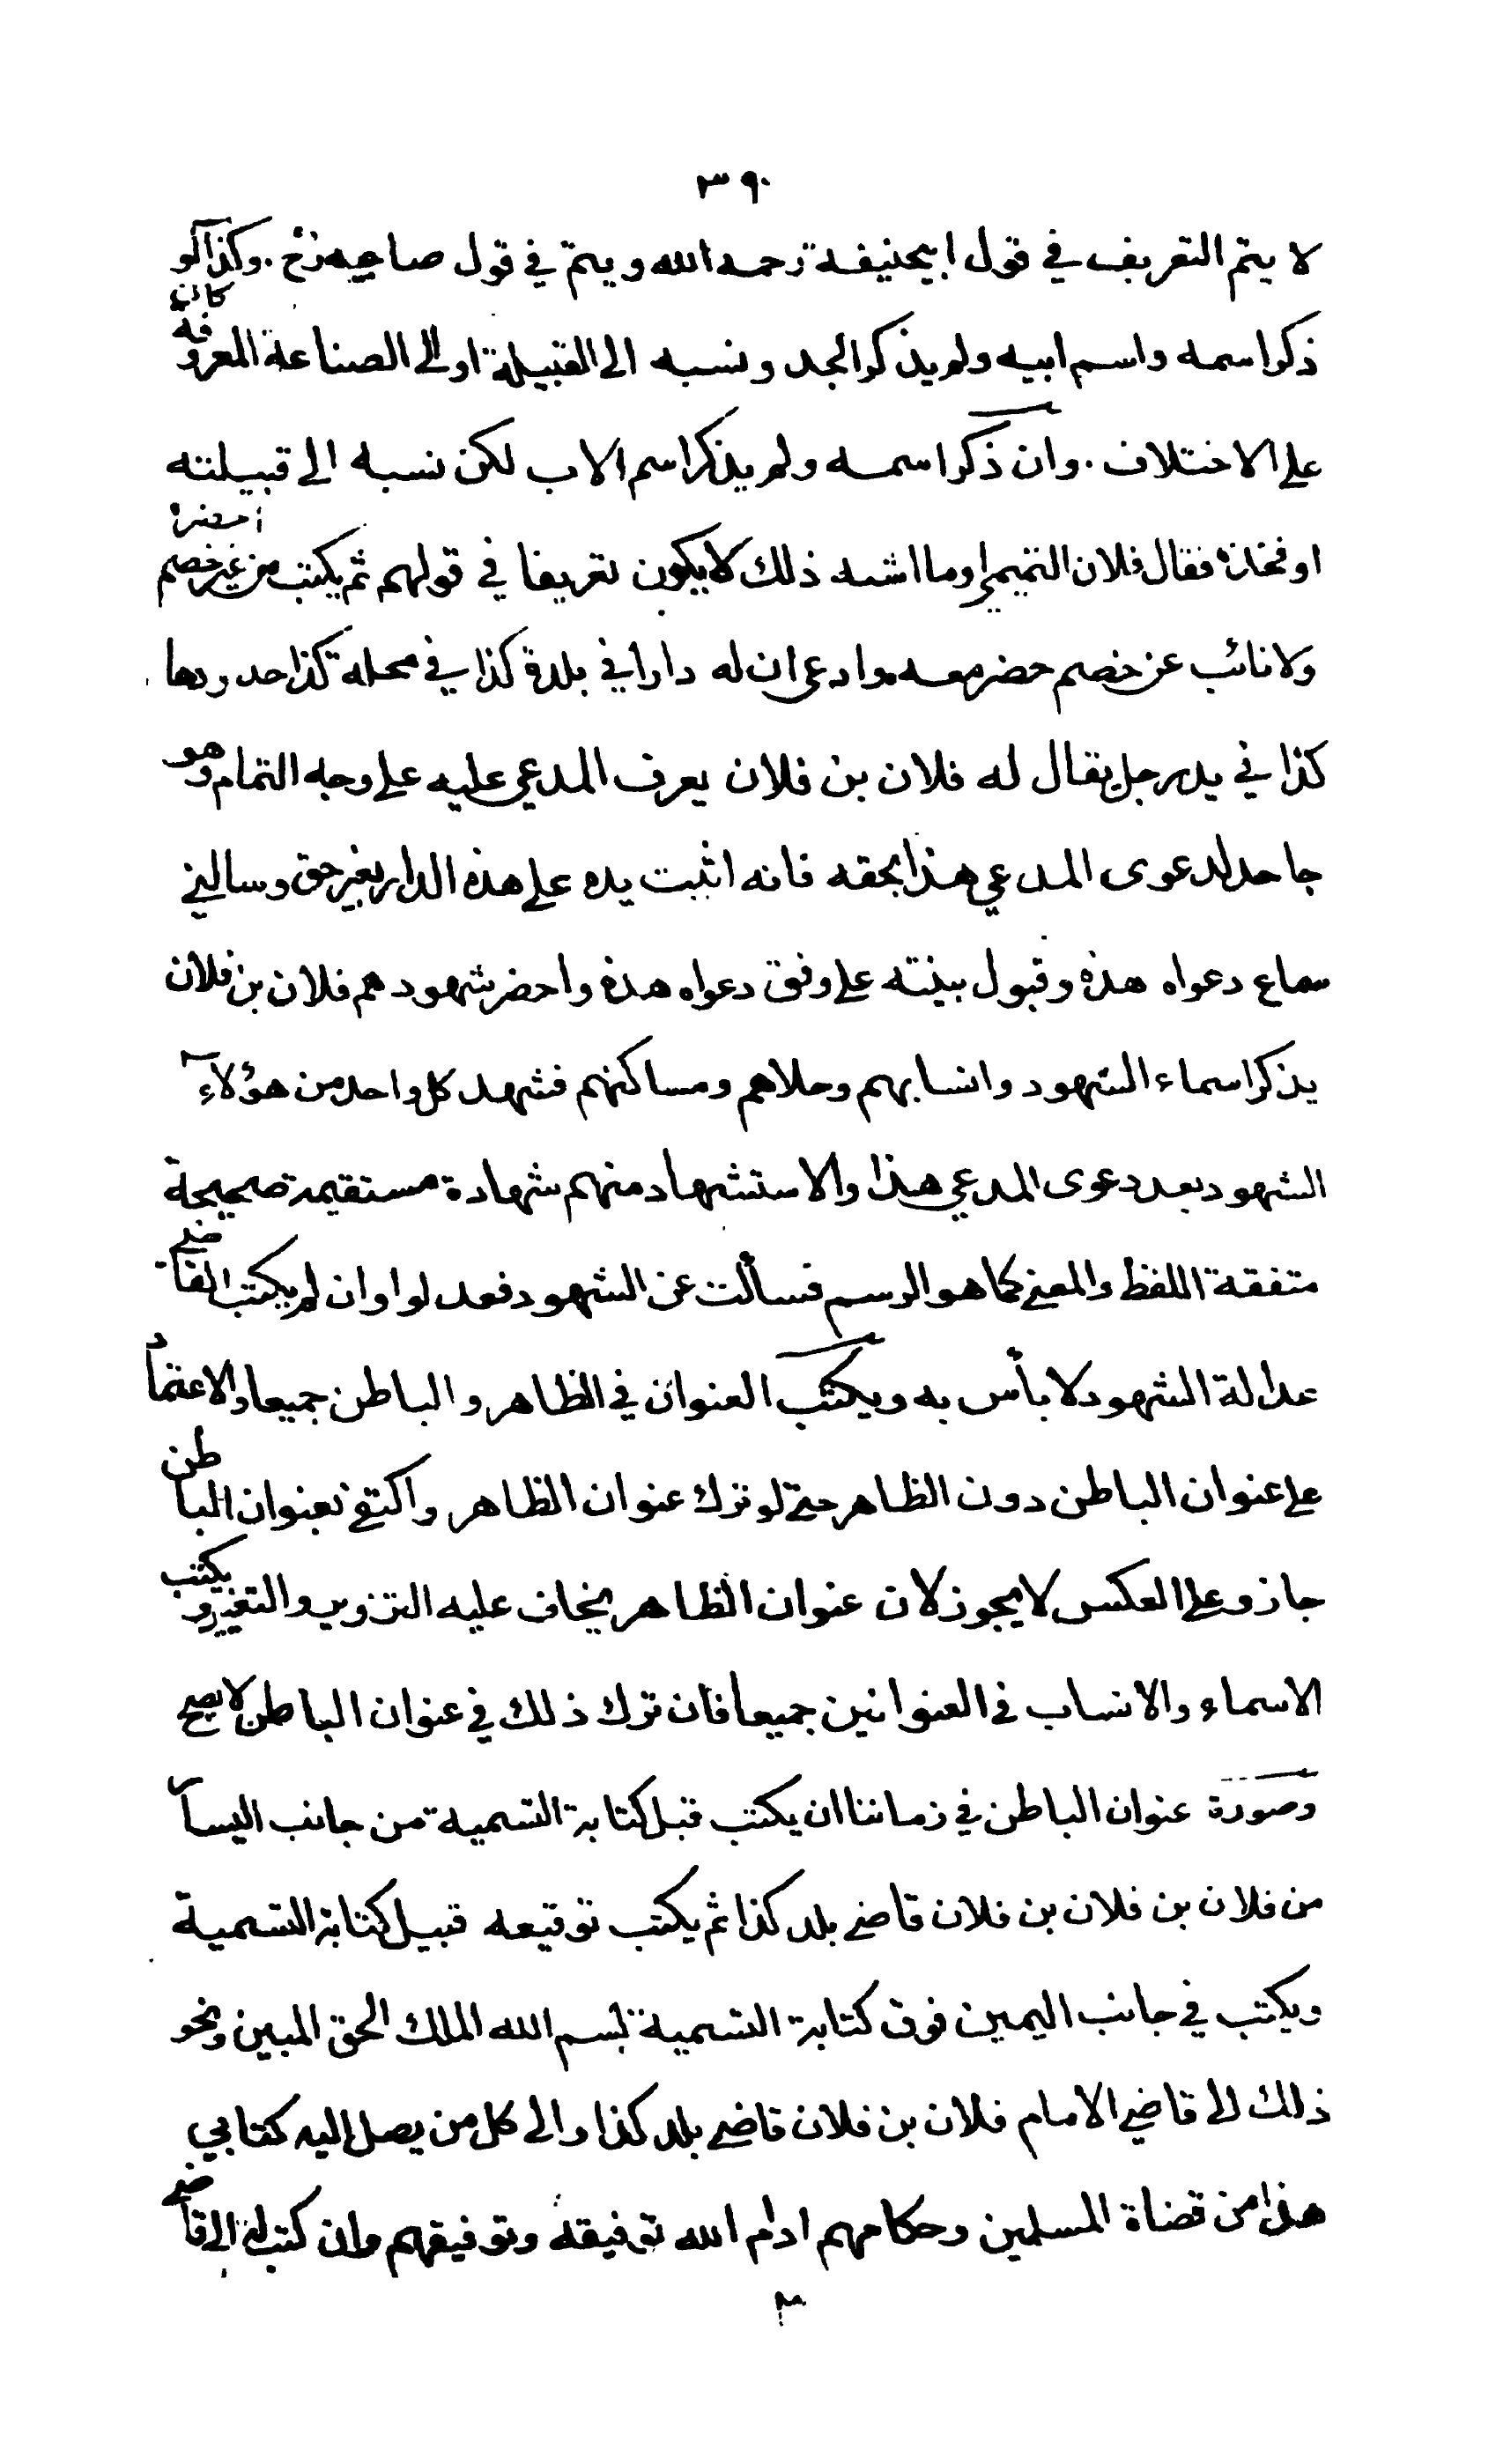 ٣٩٠
لا يتم التعريف في قول ابيحنيفة رحمه الله ويتم في قول صاحبيه رح . وكذا لو كان
ذكر اسمه واسم ابيه ولم يذكر الجد ونسبه الى القبيلة او الى الصناعة المعروفة
على الاختلاف . وان ذكر اسمه ولم يذكر اسم الاب لكن نسبه الى قبيلته
او فخذه فقال فلان التميمي او ما اشبه ذلك لا يكون تعريفا في قولهم ثم يكتب من غير خصم احضره
ولا نائب عن خصم حضر معه وادعى ان له دارا في بلدة كذا في محلة كذا حدودها
كذا في يد رجل يقال له فلان بن فلان يعرف المدعى عليه على وجه التمام وهو
جاحد لدعوى المدعي هذا بحقه فانه اثبت يده على هذه الدار بغير حق وسالني
سماع دعواه هذه وقبول بينته على وفق دعواه هذه واحضر شهود هم فلان بن فلان
يذكر اسماء الشهود وانسابهم وحلاهم ومساكنهم فشهد كل واحد من هؤلاء
الشهود بعد دعوى المدعي هذا والاستشهاد منهم شهادة مستقيمة صحيحة
متفقة اللفظ والمعنى كما هو الرسم فسألت عن الشهود فعدلوا وان لم يكتب القاضي
عدالة الشهود لا بأس به ويكتب العنوان في الظاهر والباطن جميعا والاعتماد
على عنوان الباطن دون الظاهر حتى لو ترك عنوان الظاهر واكتفى بعنوان الباطن
جاز وعلى العكس لا يجوز لان عنوان الظاهر يخاف عليه التزوير والتغيير ويكتب
الاسماء والانساب في العنوانين جميعا فان ترك ذلك في عنوان الباطن لا يصح
وصورة عنوان الباطن في زماننا ان يكتب قبل كتابة التسمية من جانب اليسار
من فلان بن فلان بن فلان قاضي بلد كذا ثم يكتب توقيعه قبيل كتابة التسمية
ويكتب في جانب اليمين فوق كتابة التسمية بسم الله الملك الحق المبين ونحو
ذلك الى قاضي الامام فلان بن فلان قاضي بلد كذا والى كل من يصل اليه كتابي
هذا من قضاة المسلمين وحكامهم ادام الله توفيقه وتوفيقهم وان كتب له الى قاضي